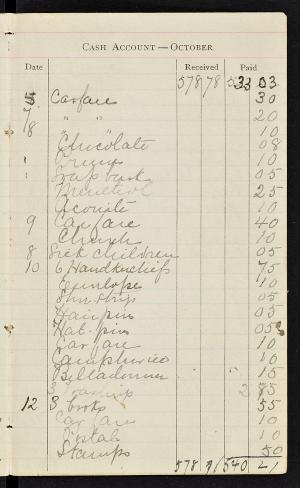 CASH ACCOUNT — OCTOBER
Date Received Paid
578 78 533 03
5 Carfare 30
7 " " 20
8 " " 10
Chocolate 08
10
05
Menthol 25
Aconite 10
9 Carfare 40
Church 10
8 Sick children 05
10 6 Handkerchiefs 75
Envelope 10
05
Hairpins 05
Hat-pins 05
Carfare 10
10
Belladonna 15
2 85
12 3 books 55
Carfare 10
Postals 10
Stamps 50
578 91 540 21